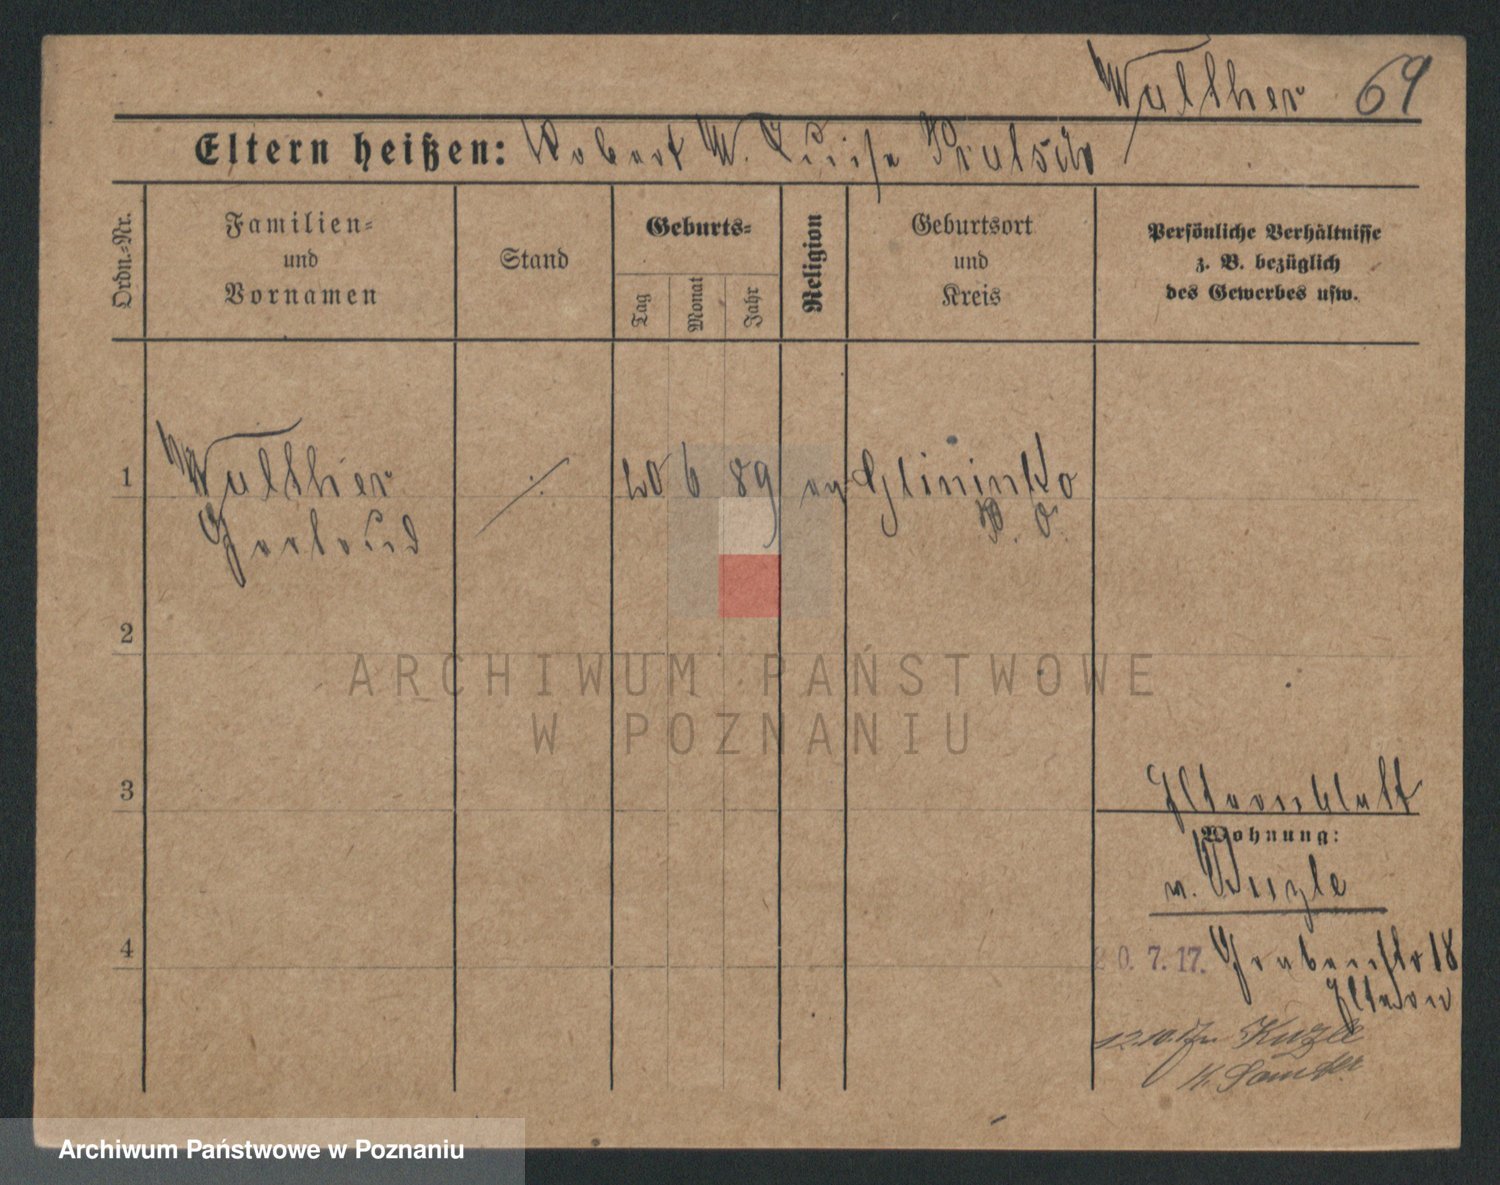 Walther 69
Eltern heißen: Robert W. Luise
Ordn.-Nr.
Familien-
und
Vornamen
Stand
Geburts-
Tag
Monat
Jahr
Religion
Geburtsort
und
Kreis
Persönliche Verhältnisse
z. B. bezüglich
des Gewerbes usw.
1 Walther 20 6 89 ev Glininko
Gertrud P. O.
2
ARCHIWUM PAŃSTWOWE
W POZNANIU
3 Elternblatt
Wohnung:
n.
4 20. 7. 17. Grabenstr 18
Eltern
12.10.17 n Kuzle
Archiwum Państwowe w Poznaniu